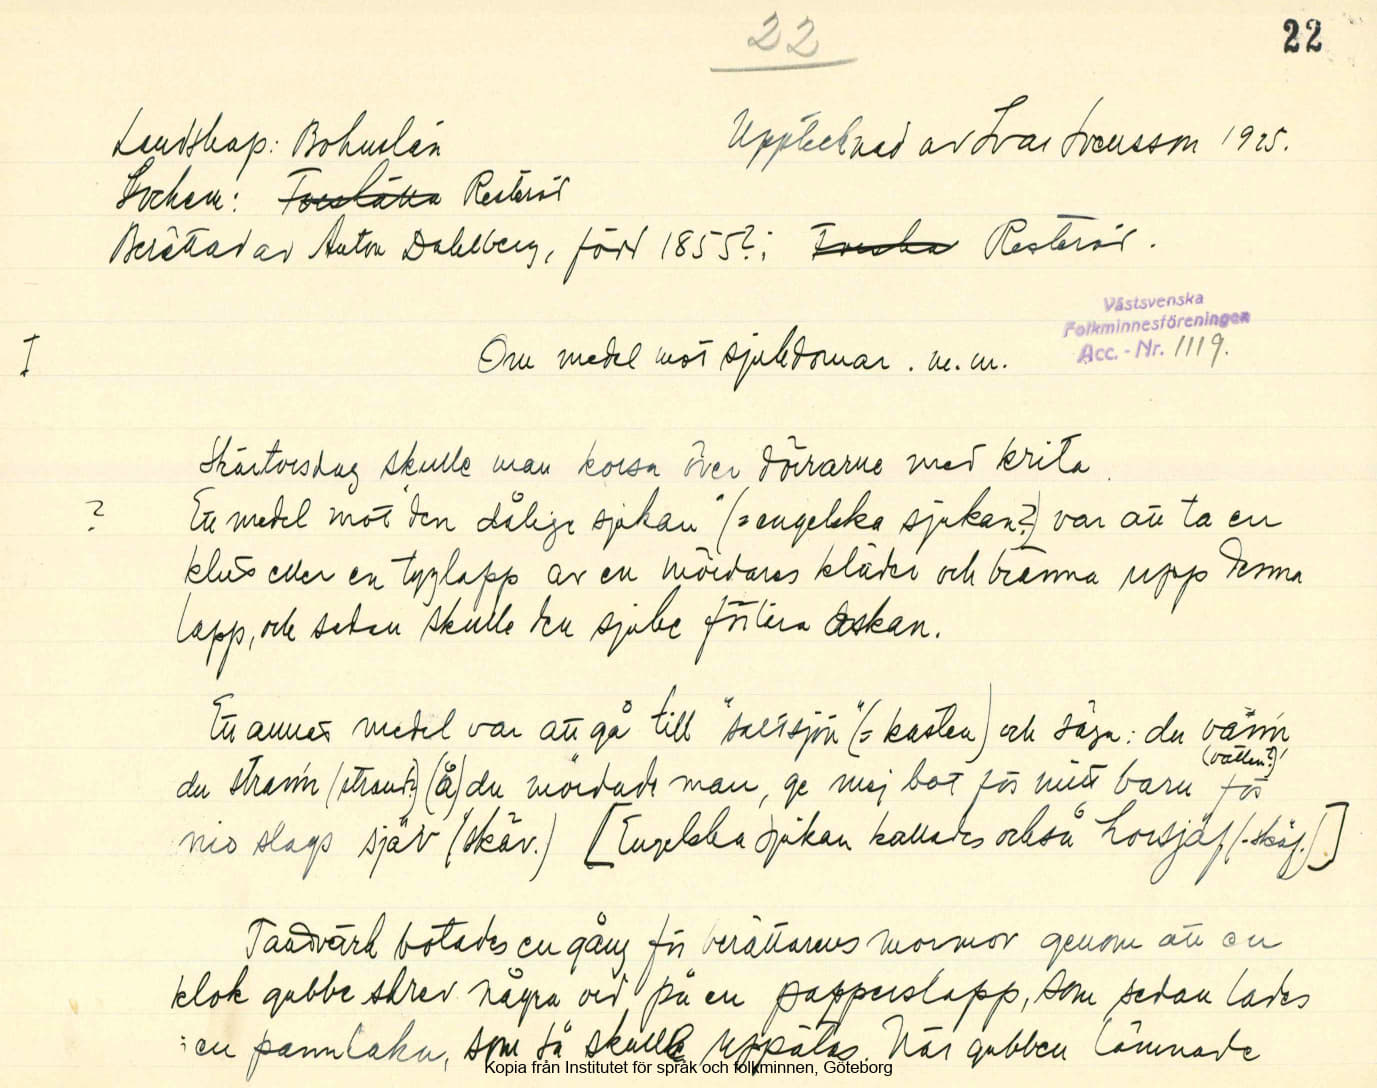 22
22
Landskap: Bohuslän
Upptecknad av Ivar Svensson 1925.
Socken: Foss Resteröd
Berättad av Anton Dahlberg, född 1855?; Resteröd.
Västsvenska
Folkminnesföreningen
Acc.-Nr. 1119.
I
Om medel mot sjukdomar. m.m.
Skärtorsdag skulle man korsa över dörrarne med krita.
?
Ett medel mot "den dålige sjukan" (= engelska sjukan?) var att ta en
klut eller en tyglapp av en mördares kläder och bränna upp denna
lapp, och sedan skulle den sjuke förtära askan.
Ett annat medel var att gå till "saltsjön" (= kusten) och säga: du vänn
(vatten?)
du strann (strand?) (å) du mördade man, ge mej bot för mitt barn för
nio slags sjäv (skäv.) [Engelska sjukan kallades också horsjäf (-skäf.)]
Tandvärk botades en gång för berättarens mormor genom att en
klok gubbe skrev några ord på en papperslapp, som sedan lades
i en pannkaka, som så skulle uppätas. När gubben lämnade
Kopia från Institutet för språk och folkminnen, Göteborg